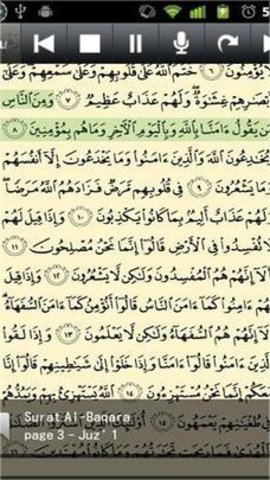 5
يُؤْمِنُونَ ٦ خَتَمَ ٱللَّهُ عَلَىٰ قُلُوبِهِمْ وَعَلَىٰ سَمْعِهِمْ وَعَلَىٰ
أَبْصَٰرِهِمْ غِشَٰوَةٌ وَلَهُمْ عَذَابٌ عَظِيمٌ ٧ وَمِنَ ٱلنَّاسِ
مَن يَقُولُ ءَامَنَّا بِٱللَّهِ وَبِٱلْيَوْمِ ٱلْءَاخِرِ وَمَا هُم بِمُؤْمِنِينَ ٨
يُخَٰدِعُونَ ٱللَّهَ وَٱلَّذِينَ ءَامَنُوا۟ وَمَا يَخْدَعُونَ إِلَّآ أَنفُسَهُمْ
وَمَا يَشْعُرُونَ ٩ فِى قُلُوبِهِم مَّرَضٌ فَزَادَهُمُ ٱللَّهُ مَرَضًا
وَلَهُمْ عَذَابٌ أَلِيمٌۢ بِمَا كَانُوا۟ يَكْذِبُونَ ١٠ وَإِذَا قِيلَ لَهُمْ
لَا تُفْسِدُوا۟ فِى ٱلْأَرْضِ قَالُوٓا۟ إِنَّمَا نَحْنُ مُصْلِحُونَ ١١
أَلَآ إِنَّهُمْ هُمُ ٱلْمُفْسِدُونَ وَلَٰكِن لَّا يَشْعُرُونَ ١٢ وَإِذَا قِيلَ
لَهُمْ ءَامِنُوا۟ كَمَآ ءَامَنَ ٱلنَّاسُ قَالُوٓا۟ أَنُؤْمِنُ كَمَآ ءَامَنَ ٱلسُّفَهَآءُ
أَلَآ إِنَّهُمْ هُمُ ٱلسُّفَهَآءُ وَلَٰكِن لَّا يَعْلَمُونَ ١٣ وَإِذَا لَقُوا۟
ٱلَّذِينَ ءَامَنُوا۟ قَالُوٓا۟ ءَامَنَّا وَإِذَا خَلَوْا۟ إِلَىٰ شَيَٰطِينِهِمْ قَالُوٓا۟ إِنَّا
مَعَكُمْ إِنَّمَا نَحْنُ مُسْتَهْزِءُونَ ١٤ ٱللَّهُ يَسْتَهْزِئُ بِهِمْ وَيَمُدُّهُمْ
فِى طُغْيَٰنِهِمْ يَعْمَهُونَ ١٥ أُو۟لَٰٓئِكَ ٱلَّذِينَ
Surat Al-Baqara
page 3 - Juz' 1